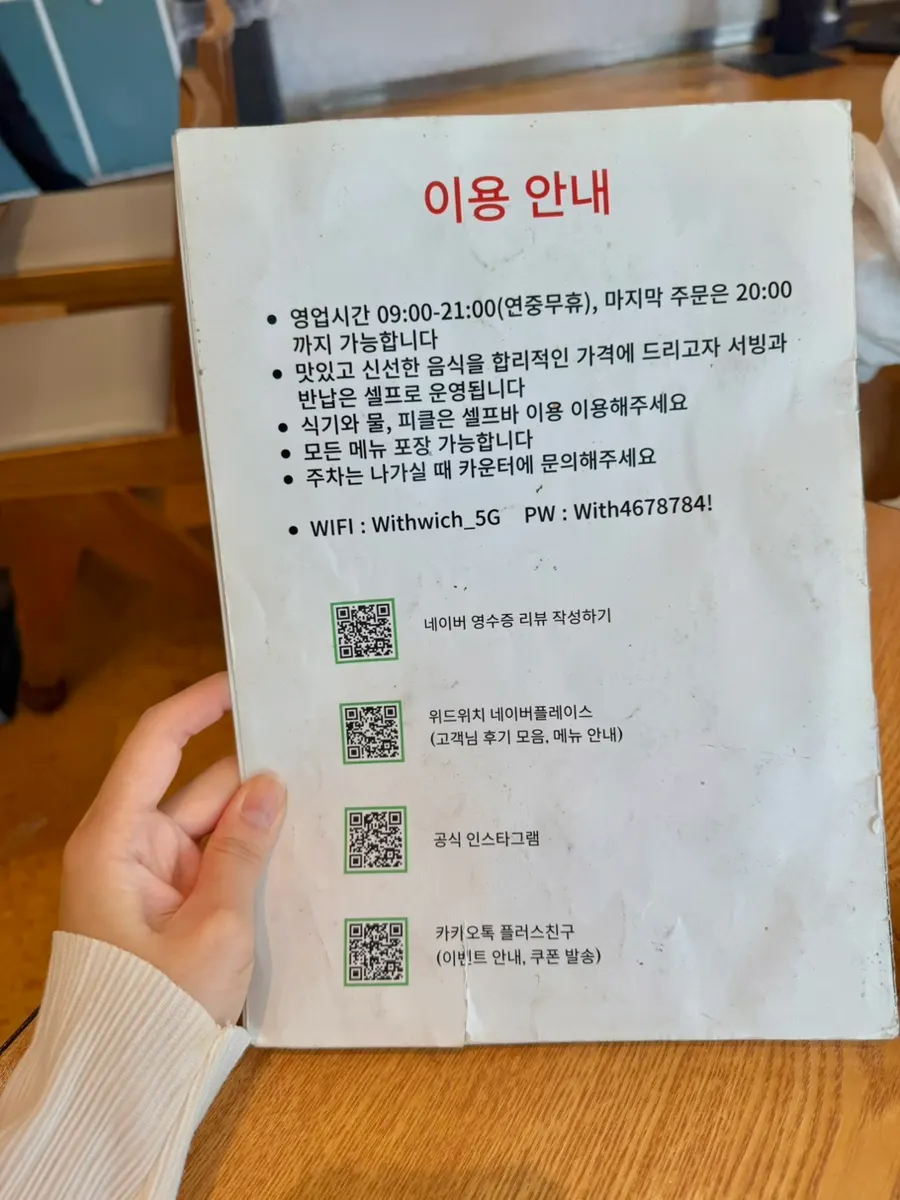 이용 안내
• 영업시간 09:00-21:00(연중무휴), 마지막 주문은 20:00
까지 가능합니다
• 맛있고 신선한 음식을 합리적인 가격에 드리고자 서빙과
반납은 셀프로 운영됩니다
• 식기와 물, 피클은 셀프바 이용 이용해주세요
• 모든 메뉴 포장 가능합니다
• 주차는 나가실 때 카운터에 문의해주세요
• WIFI : Withwich_5G PW : With4678784!
네이버 영수증 리뷰 작성하기
위드위치 네이버플레이스
(고객님 후기 모음, 메뉴 안내)
공식 인스타그램
카키오톡 플러스친구
(이벤트 안내, 쿠폰 발송)